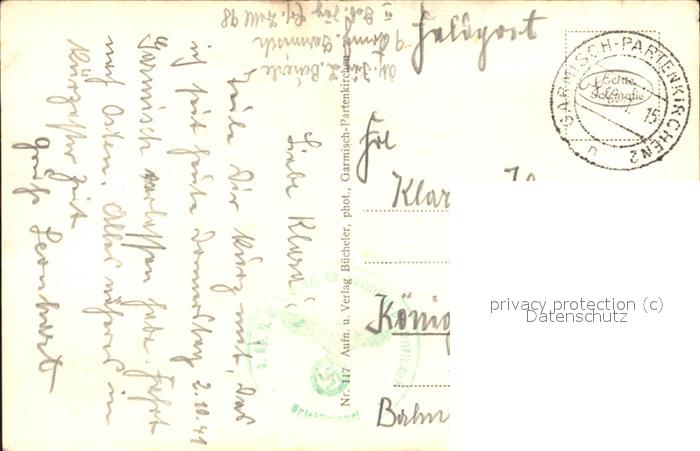 Feldpost
GARMISCH-PARTENKIRCHEN 2
Echte
15
Frl
Klar
König
Bahn
privacy protection (c)
Datenschutz
Nr. 117 Aufn. u. Verlag Bücheler, phot., Garmisch-Partenkirchen
Briefstempel
9 Komp. Garmisch
Liebe Klara!
Teile Dir kurz mit, das
ich seit heute Donnerstag 2.10.41
Garmisch verlassen habe. Fahrt
nach Osten. Alles nähere in
kürzester Zeit
Gruß Leonhart